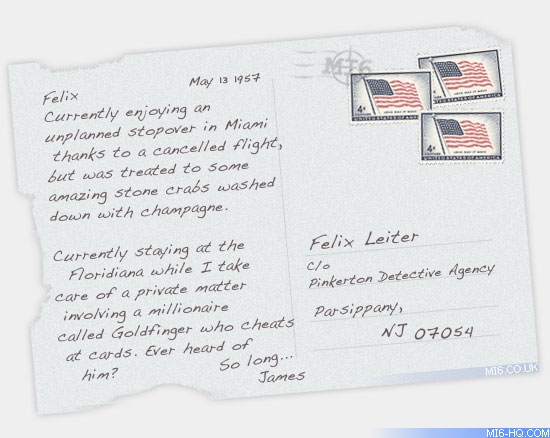 May 13 1957
Felix
Currently enjoying an
unplanned stopover in Miami
thanks to a cancelled flight,
but was treated to some
amazing stone crabs washed
down with champagne.
Currently staying at the
Floridiana while I take
care of a private matter
involving a millionaire
called Goldfinger who cheats
at cards. Ever heard of
him?
So long...
James
MI6
4¢
UNITED STATES OF AMERICA
4¢
UNITED STATES OF AMERICA
4¢
UNITED STATES OF AMERICA
Felix Leiter
c/o
Pinkerton Detective Agency
Parsippany,
NJ 07054
MI6.CO.UK
MI6-HQ.COM